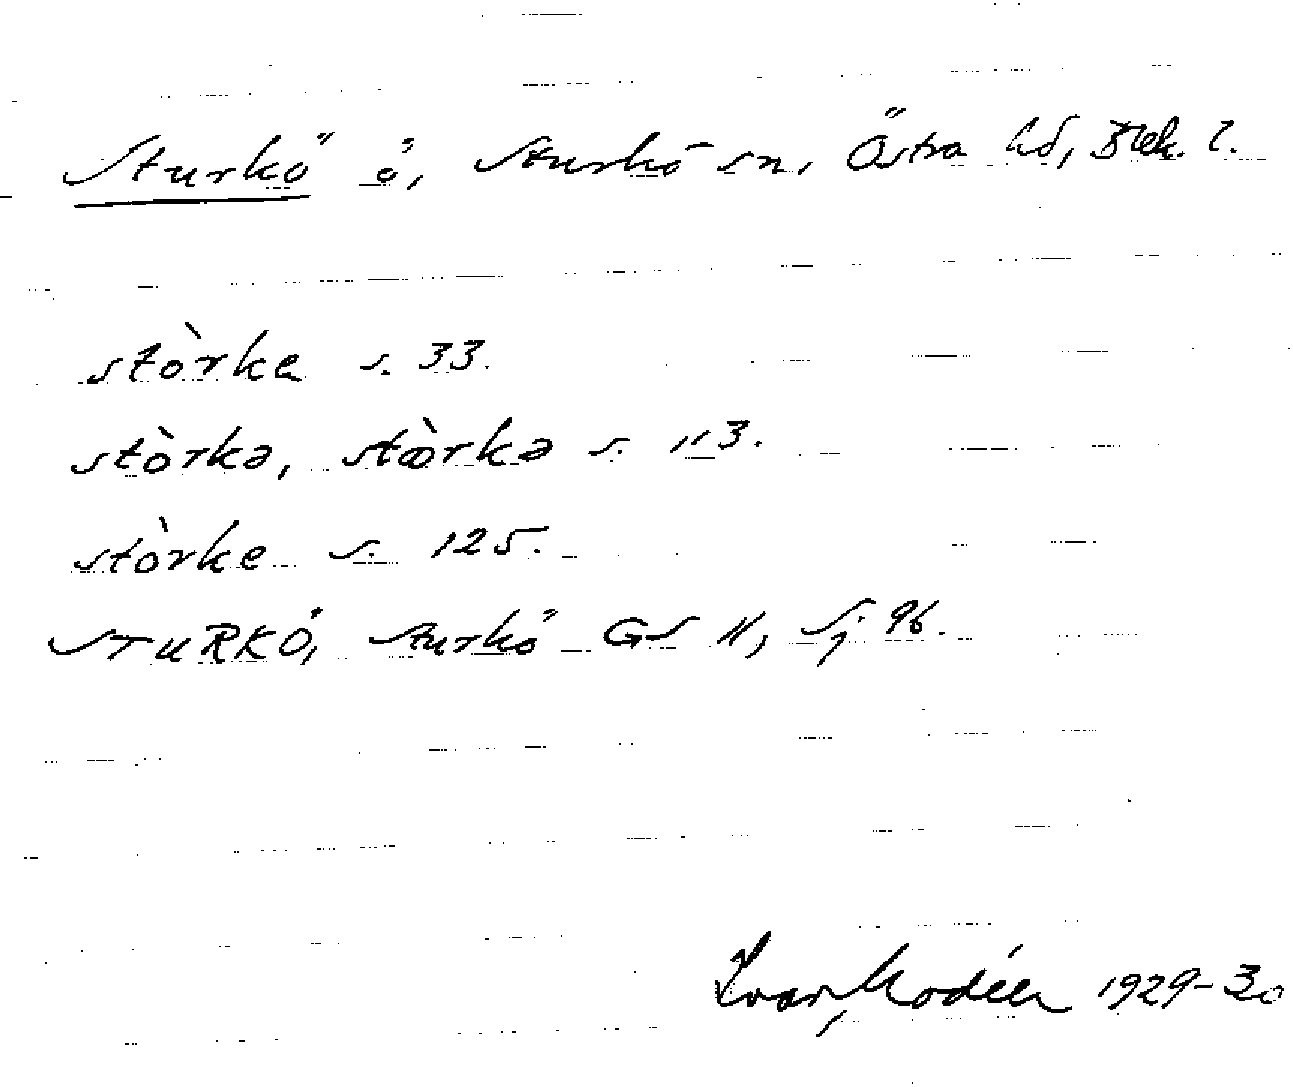 Sturkö ö, Sturkö sn, Östra hd, Blek. l.
stòrke s. 33.
stòrkə, stœ̀rkə s. 113.
stòrke s. 125.
STURKÖ, Sturkö GS 11, Sj 96.
Ivar Modéer 1929-30